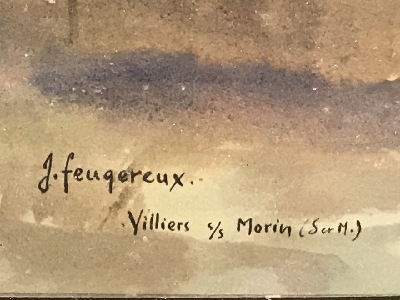 J. feugereux.
Villiers s/s Morin (S et M.)